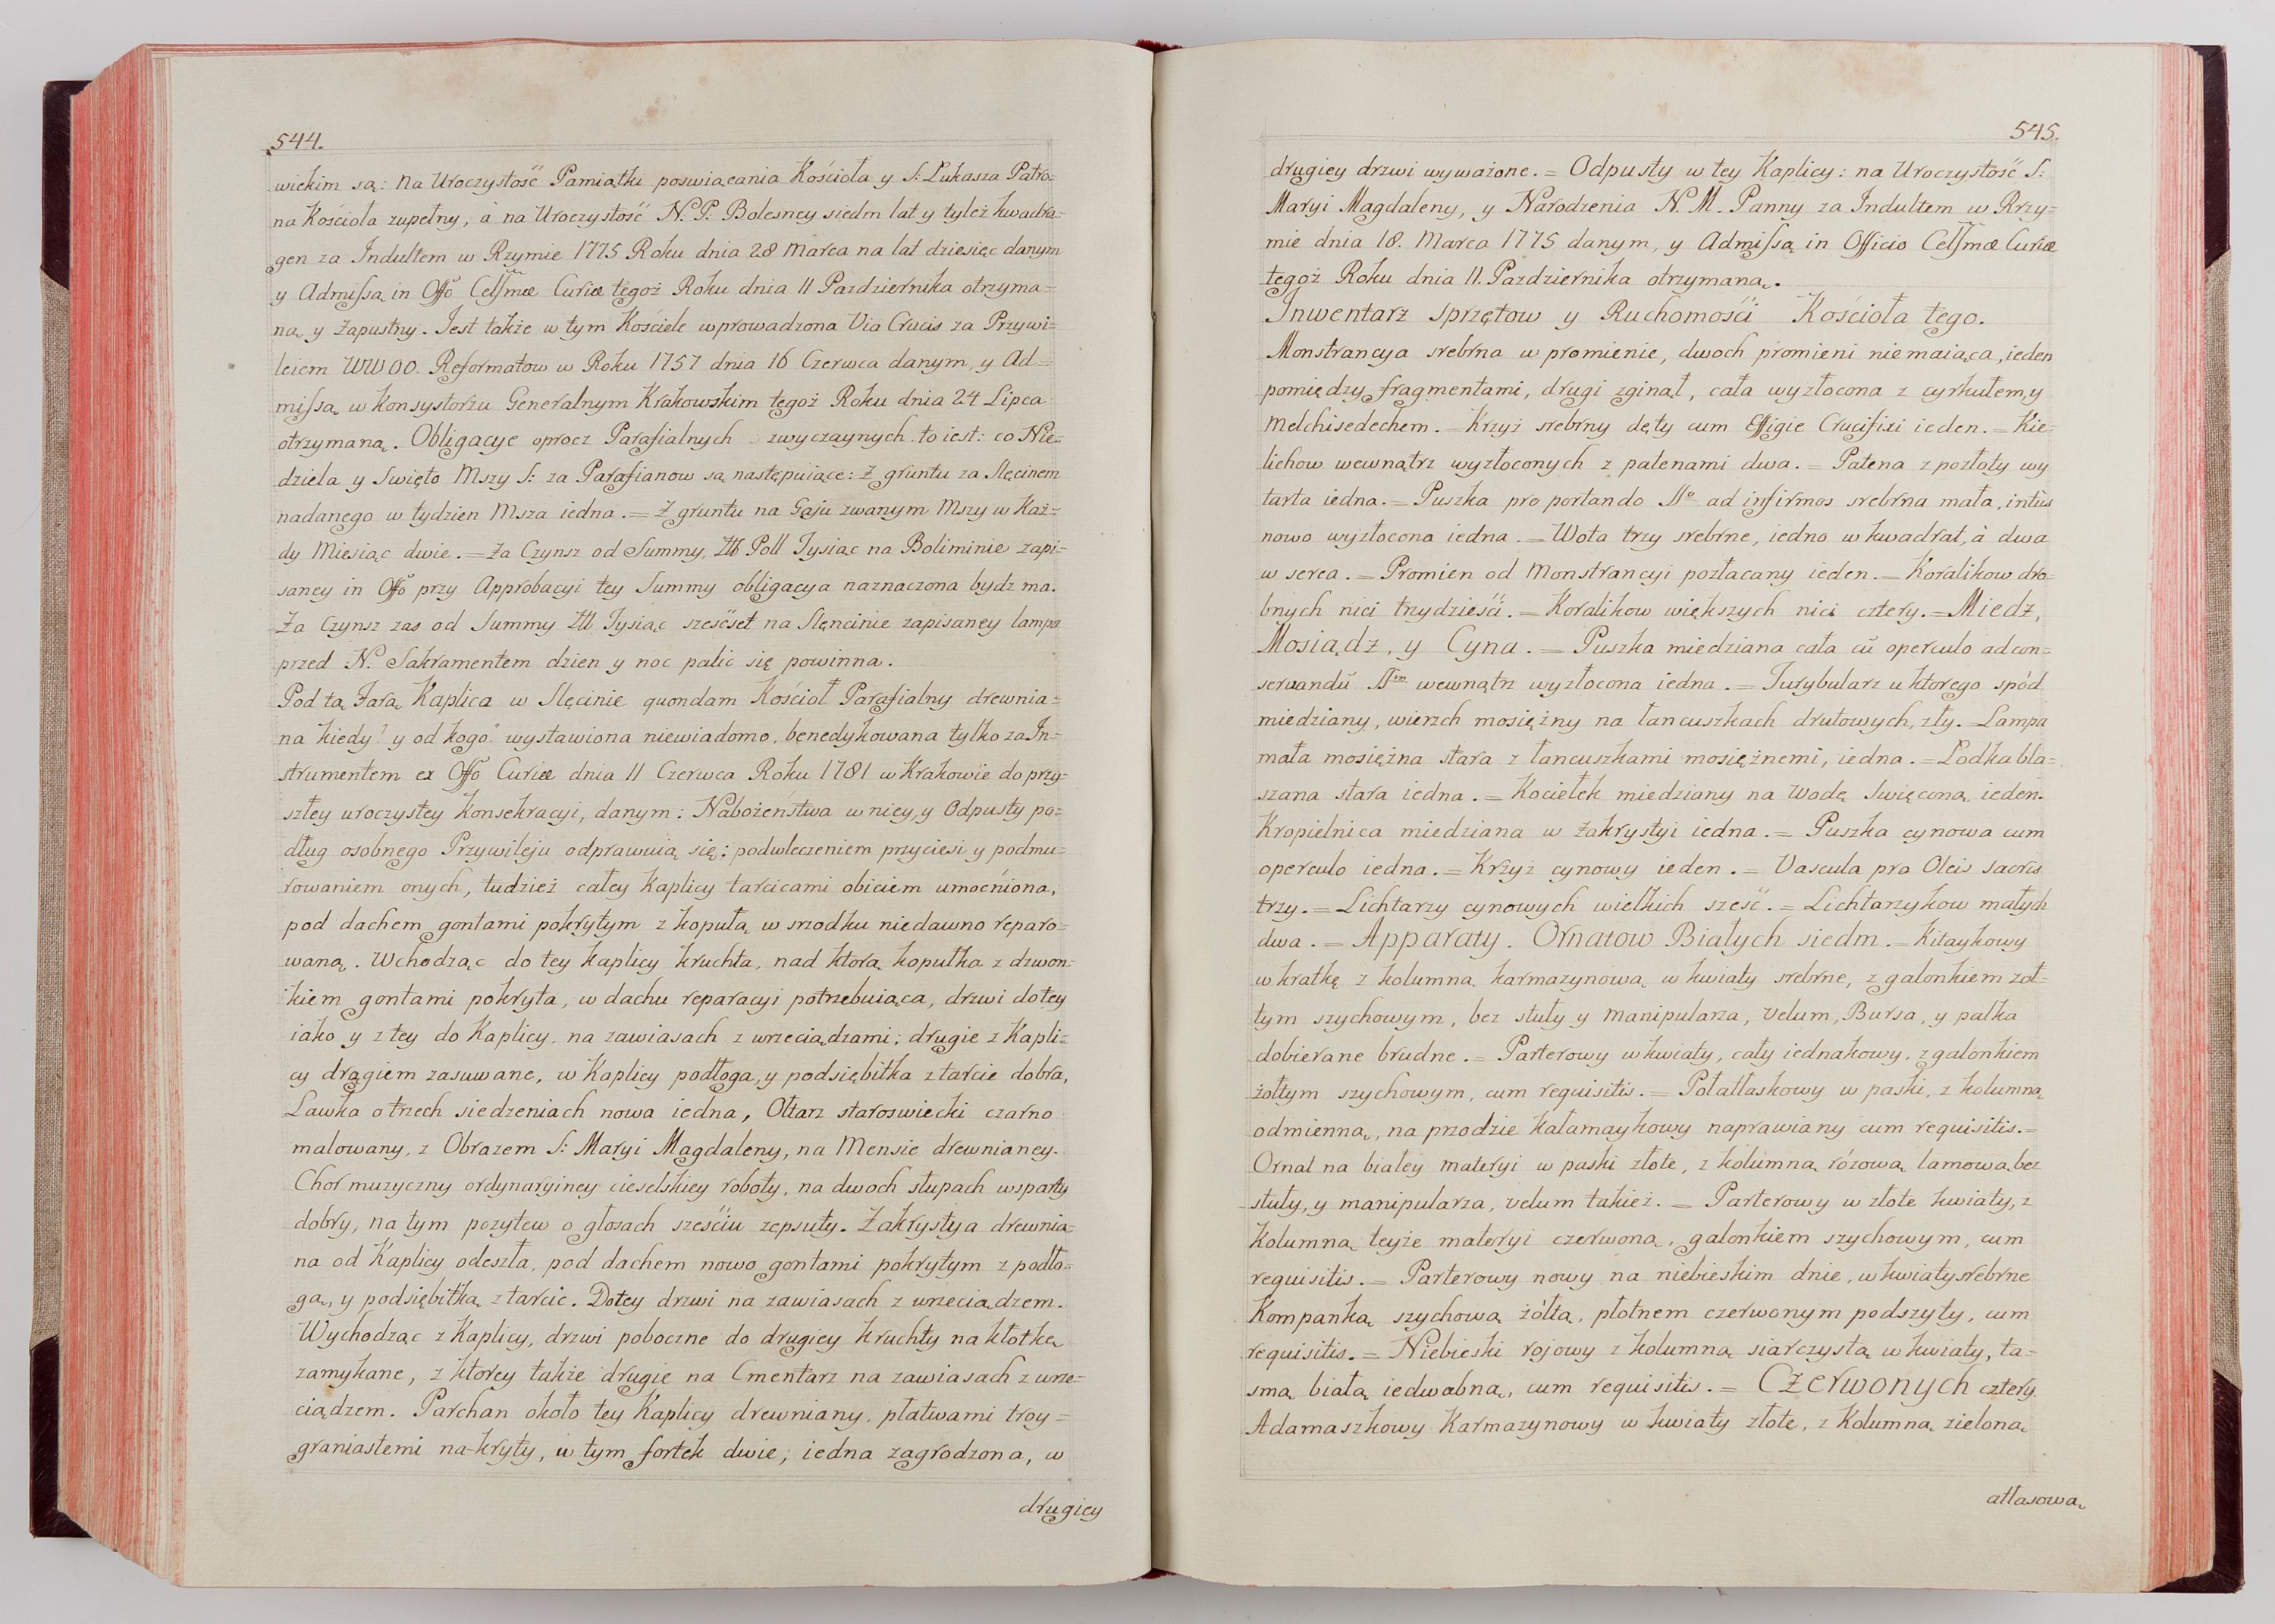 544.
wickim są: Na Uroczystość Pamiątki poswiącania Kościoła y S: Łukasza Patro=
na Kościoła zupełny, à na Uroczystość N. P. Bolesney siedm lat y tyleż kwadra=
gen za Indultem w Rzymie 1775 Roku dnia 28 Marca na lat dziesięc danym
y Admissą in Offo Celssmæ Curiæ tegoż Roku dnia 11 Pazdziernika otrzyma=
ną y Zapustny. Jest także w tym Kosciele wprowadzona Via Crucis za Przywi=
leiem WWOO. Reformatow w Roku 1757 dnia 16 Czerwca danym, y Ad=
missą w Konsystorzu Generalnym Krakowskim tegoż Roku dnia 24 Lipca
otrzymaną. Obligacye oprocz Parafialnych zwyczaynych to iest: co Nie=
dziela y Swięto Mszy S: za Parafianow są następuiące: Z gruntu za Slęcinem
nadanego w tydzien Msza iedna. = Z gruntu na Gaju zwanym Mszy w Kaz=
dy Miesiąc dwie. = Za Czynsz od Summy Ztt Poll Tysiac na Boliminie zapi=
saney in Offo przy Approbacyi tey Summy obligacya naznaczona bydz ma.
Za Czynsz zas od Summy Ztt Tysiąc szesćset na Slęncinie zapisaney lampa
przed N. Sakramentem dzien y noc palic się powinna.
Pod tą Farą Kaplica w Slęcinie quondam Kościoł Parafialny drewnia=
na kiedy? y od kogo? wystawiona niewiadomo, benedykowana tylko za In=
strumentem ex Offo Curiæ dnia 11 Czerwca Roku 1781 w Krakowie do przy=
szłey uroczystey konsekracyi, danym: Nabożeństwa w niey, y Odpusty po=
dług osobnego Przywileju odprawuią się: podwleczeniem przyciesi y podmu=
rowaniem onych, tudzież całey Kaplicy tarcicami obiciem umocniona,
pod dachem gontami pokrytym z kopułą w srzodku niedawno reparo=
waną. Wchodząc do tey Kaplicy kruchta, nad ktorą kopułka z dzwon=
kiem gontami pokryta, w dachu reparacyi potrzebuiąca, drzwi do tey
iako y z tey do Kaplicy, na zawiasach z wrzeciądzami; drugie z Kapli=
cy drągiem zasuwane, w Kaplicy podłoga, y podsiębitka z tarcic dobra,
Lawka o trzech siedzeniach nowa iedna, Ołtarz staroswiecki czarno
malowany, z Obrazem S: Maryi Magdaleny, na Mensie drewnianey.
Chor muzyczny ordynaryiney cieselskiey roboty, na dwoch słupach wsparty
dobry, na tym pozytew o głosach sześciu zepsuty. Zakrystya drewnia=
na od Kaplicy odeszła, pod dachem nowo gontami pokrytym z podło=
gą, y podsiębitką z tarcic. Do tey drzwi na zawiasach z wrzeciądzem.
Wychodząc z Kaplicy, drzwi poboczne do drugiey kruchty na kłotkę
zamykane, z ktorey także drugie na Cmentarz na zawiasach z wrze=
ciądzem. Parchan około tey Kaplicy drewniany, płatwami troy=
graniastemi nakryty, w tym fortek dwie, iedna zagrodzona, w
drugiey
545.
drugiey drzwi wyważone. = Odpusty w tey Kaplicy: na Uroczystość S:
Maryi Magdaleny, y Narodzenia N. M. Panny za Indultem w Rzy=
mie dnia 18. Marca 1775 danym, y Admissą in Officio Celssmæ Curiæ
tegoż Roku dnia 11. Pazdziernika otrzymaną.
Inwentarz Sprzętow y Ruchomości Kościoła tego.
Monstrancya srebrna w promienie, dwoch promieni niemaiąca, ieden
pomiędzy fragmentami, drugi zginął, cała wyzłocona z cyrkułem, y
Melchisedechem. = Krzyż srebrny dęty cum Effigie Crucifixi ieden. = Kie=
lichow wewnątrz wyzłoconych z patenami dwa. = Patena z pozłoty wy
tarta iedna. = Puszka pro portando SSo ad infirmos srebrna mała, intus
nowo wyzłocona iedna. = Wota trzy srebrne, iedno w kwadrat, à dwa
w serca. = Promien od Monstrancyi pozłacany ieden. = Koralikow dro=
bnych nici trzydzieści. = Koralikow większych nici cztery. = Miedz,
Mosiądz, y Cyna. = Puszka miedziana cała cū operculo ad con=
servandū SSm wewnątrz wyzłocona iedna. = Turybularz u ktorego spód
miedziany, wierzch mosiężny na łancuszkach drutowych, zły. = Lampa
mała mosiężna stara z łancuszkami mosiężnemi, iedna. = Łodka bla=
szana stara iedna. = Kociełek miedziany na Wodę Swięconą ieden.
Kropielnica miedziana w Zakrystyi iedna. = Puszka cynowa cum
operculo iedna. = Krzyż cynowy ieden. = Vascula pro Oleis sacris
trzy. = Lichtarzy cynowych wielkich sześć. = Lichtarzykow małych
dwa. = Apparaty. Ornatow Białych siedm. = Kitaykowy
w kratkę z kolumną karmazynową w kwiaty srebrne, z galonkiem żoł=
tym szychowym, bez stuły y manipularza, Velum, Bursa, y palka
dobierane brudne. = Parterowy w kwiaty, cały iednakowy, z galonkiem
żołtym szychowym, cum requisitis. = Połatłaskowy w paski, z kolumną
odmienną, na przodzie kałamaykowy naprawiany cum requisitis. =
Ornat na białey materyi w paski złote, z kolumną różową lamową bez
stuły, y manipularza, velum takież. = Parterowy w złote kwiaty, z
Kolumną teyże materyi czerwoną, galonkiem szychowym, cum
requisitis. = Parterowy nowy na niebieskim dnie, w kwiaty srebrne
Kompanką szychową żółtą, płotnem czerwonym podszyty, cum
requisitis. = Niebieski rojowy z kolumną siarczystą w kwiaty, ta=
smą białą iedwabną, cum requisitis. = Czerwonych cztery.
Adamaszkowy Karmazynowy w kwiaty złote, z Kolumną zieloną
atłasową